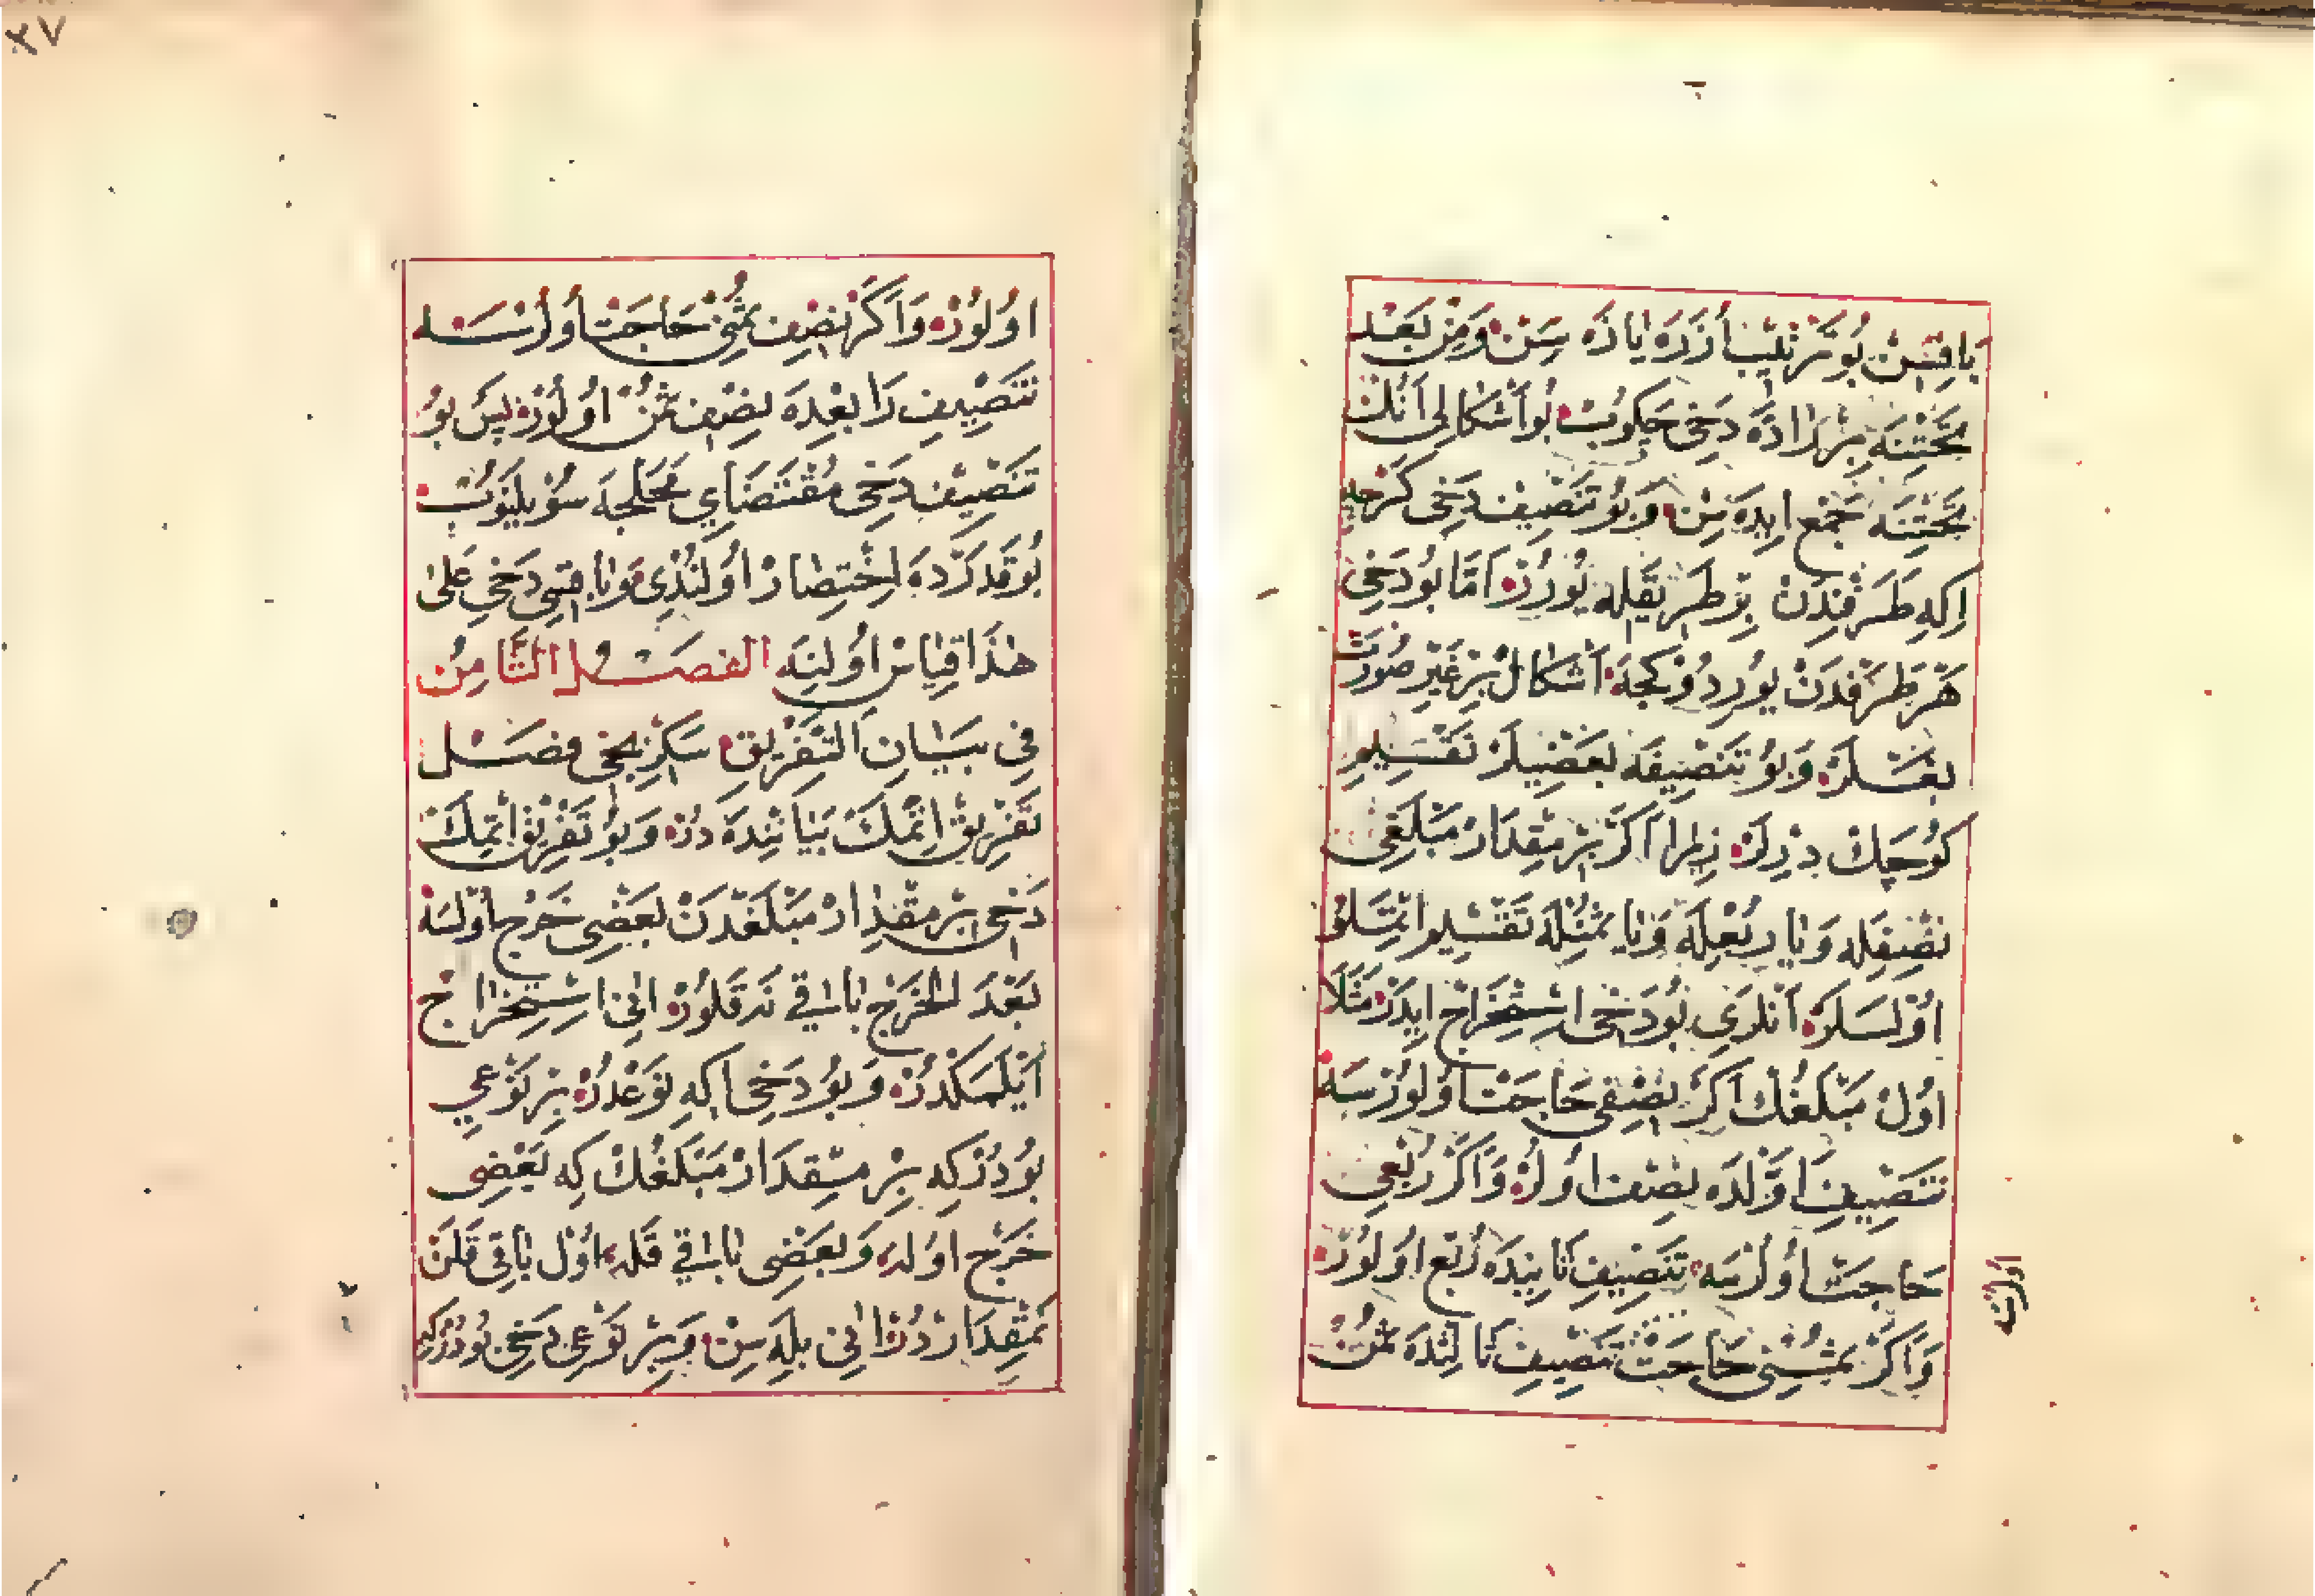 باقیسن بو ترتیب أزره یازه سن ومن بعد
تحتنه بر زاده دخی چکوب بو أشكالی أنك
تحتنه جمع ایده سن و بو تنصیف دخی کرچه
اكه طرفدن بر طریقله یورر اما بو دخی
هر طرفدن یورر دو كجه أشكال بر غیر صورت
بغشلر و بو تنصیفه بعضیلر تقسیم
کوچك دیرلر زیرا اکر بر مقدار مبلغی
نصفله ویا ربعله ویا ثمنله تقسیم ایتسلو
اولسلر أنلری بو دخی استخراج ایدر مثلا
اول مبلغك اكر نصفی حاجت اولورسه
تنصیف اولده نصف اولر واکر ربعی
حاجت أولرسه تنصیف ثانیده ربع اولور
واکر ثمنی حاجت تنصیف ثالثده ثمن
اولرسه
٣٧
اولور واکر نصف ثمنی حاجت أولرسه
تنصیف رابعده نصف ثمن اولور پس بو
تنصیف دخی مقتضای محلجه سویلیوب
بو قدرده اختصار اولندی وباقیسی دخی علی
هذا قیاس اولنه الفصل الثامن
فی بیان التفریق سكزنجی فصل
تفریق اتمك بیاننده در و بو تفریق اتمك
دخی بر مقدار مبلغدن بعضی خرج أولسه
بعد الخرج باقی نه قلور انی استخراج
أیلمكدر و بو دخی اكه نوعدر بر نوعی
بودر كه بر مقدار مبلغك كه بعضی
خرج اوله وبعضی باقی قله اول باقی قلن
نمقدار در انی بله سن وبر نوعی دخی بودركه